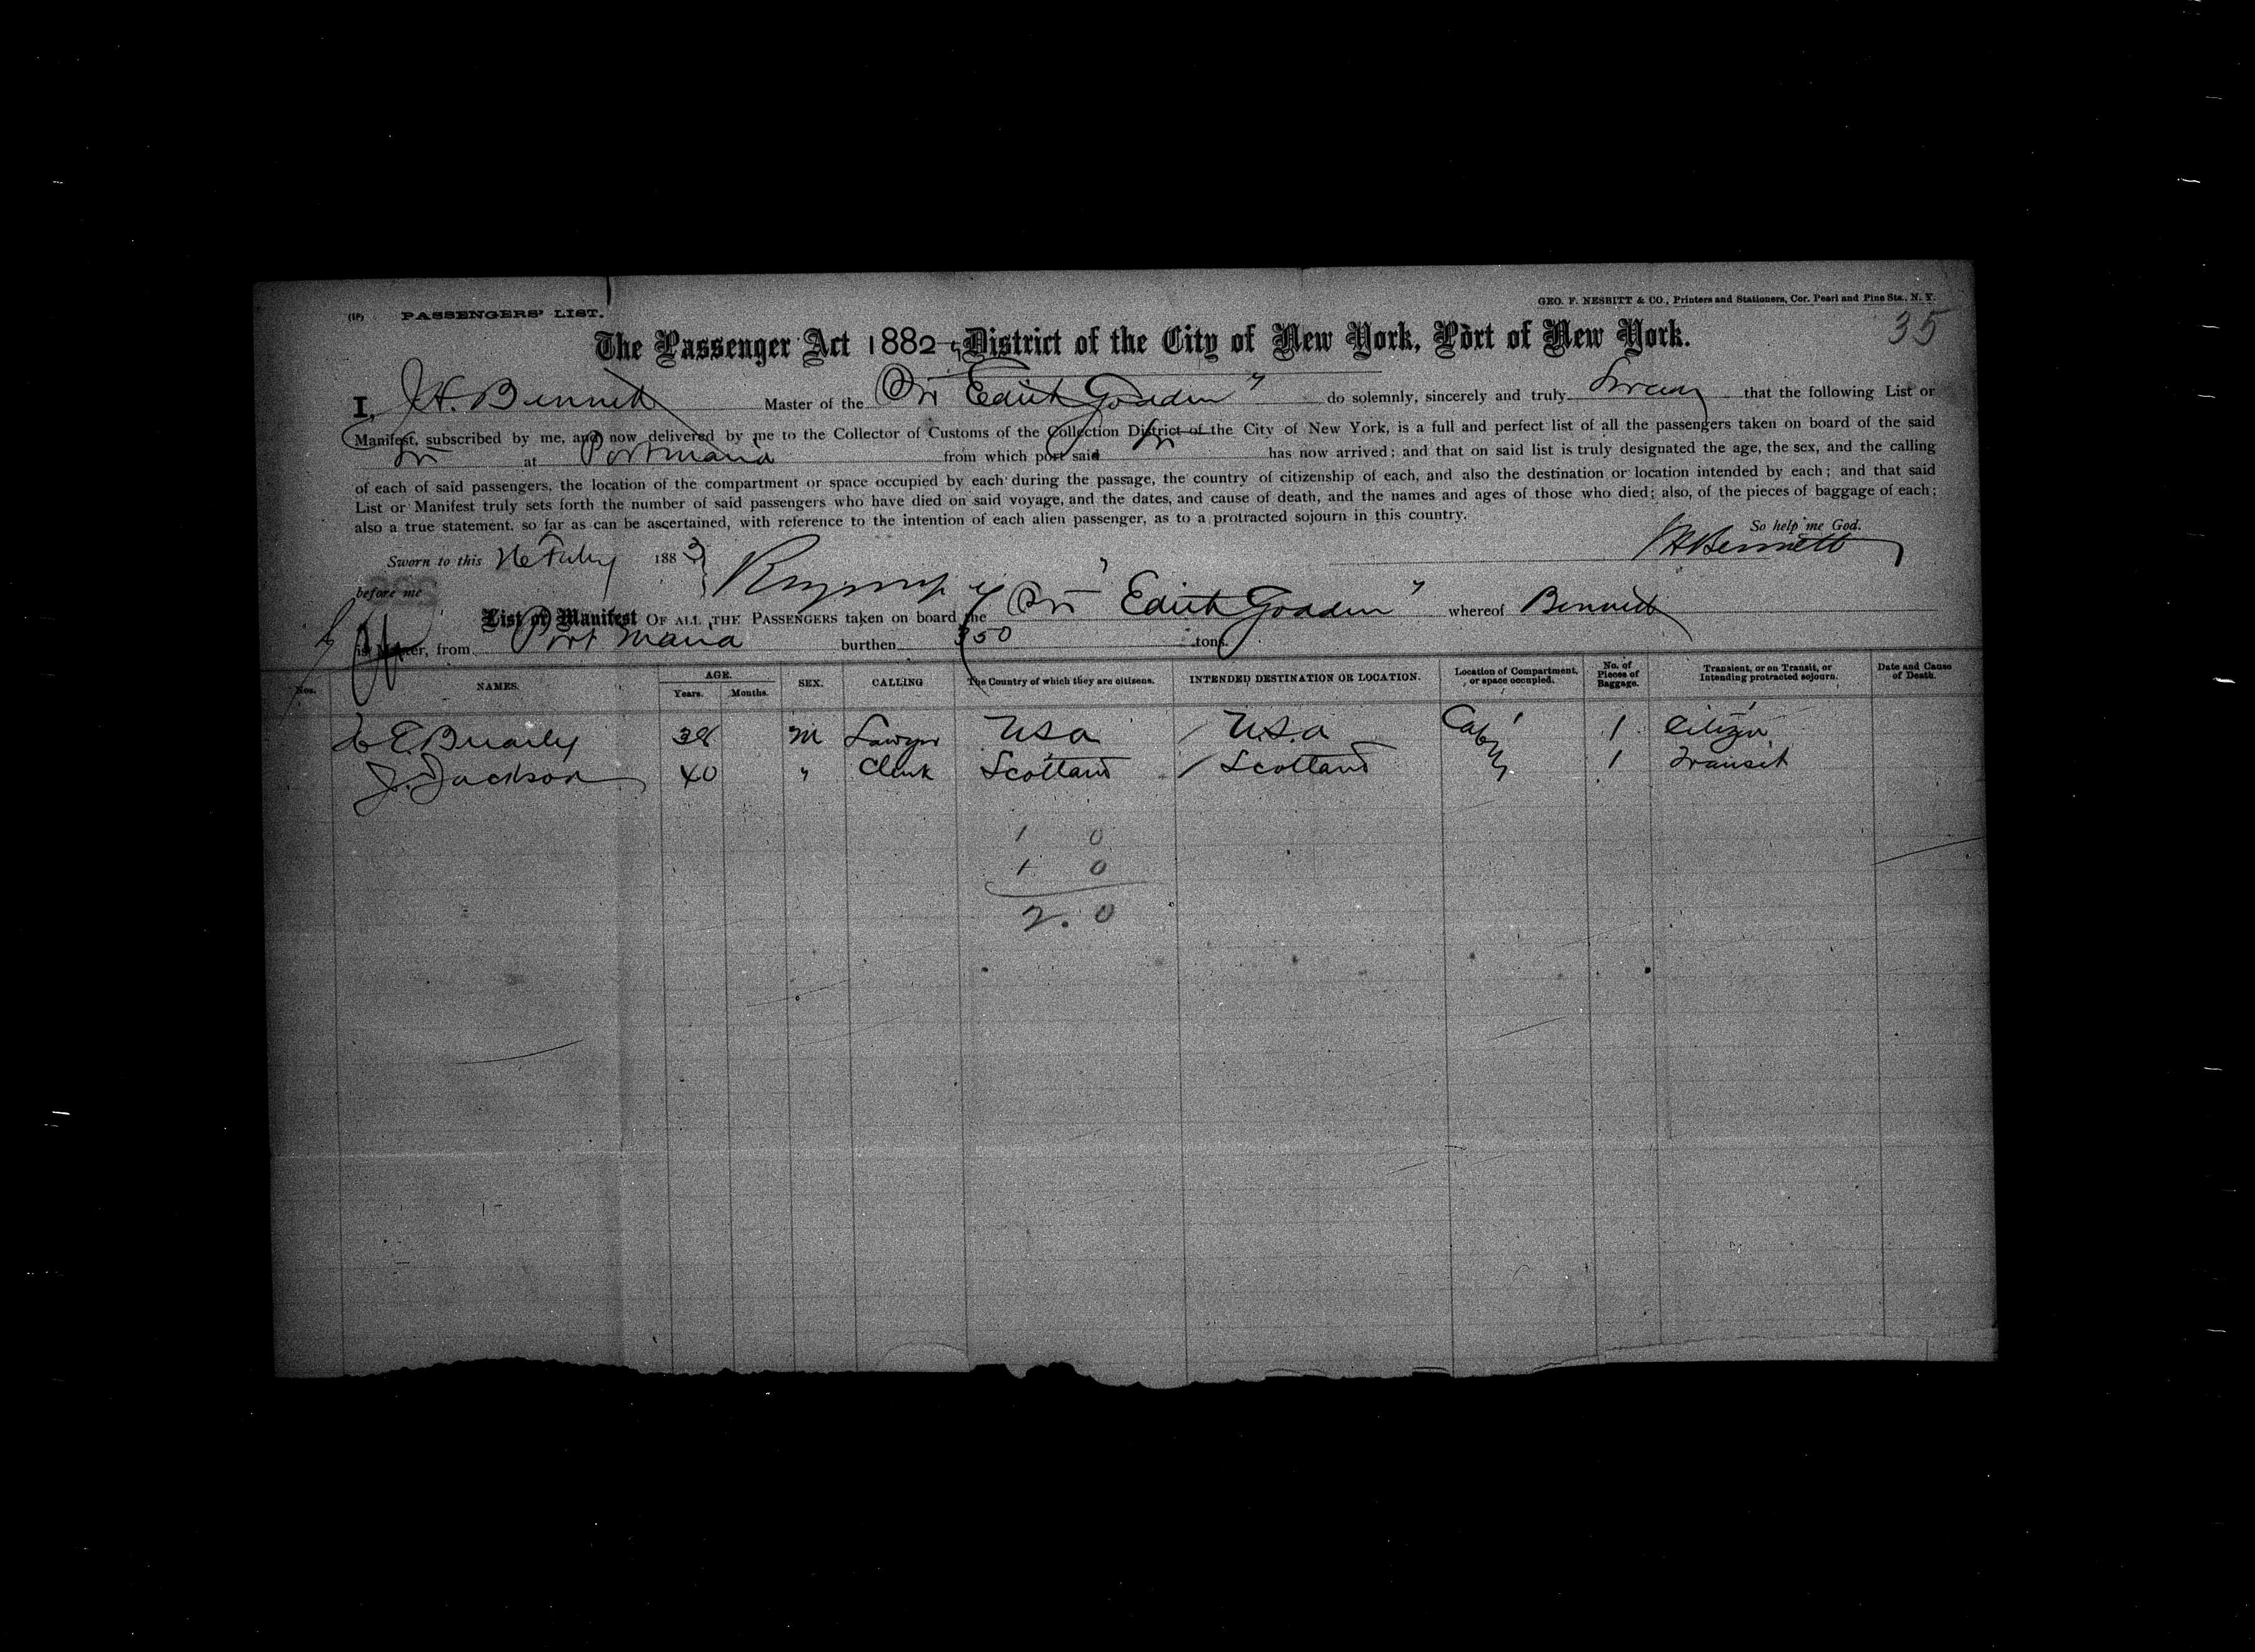 (18) PASSENGERS' LIST.
GEO. F. NESBITT & CO., Printers and Stationers, Cor. Pearl and Pine Sts., N. Y.
35
The Passenger Act 1882 District of the City of New York, Port of New York.
I, J H. Bennett Master of the Str Edith Godden" do solemnly, sincerely and truly Swear that the following List or
Manifest, subscribed by me, and now delivered by me to the Collector of Customs of the Collection District of the City of New York, is a full and perfect list of all the passengers taken on board of the said
Str at Portmaria from which port said Str has now arrived; and that on said list is truly designated the age, the sex, and the calling
of each of said passengers, the location of the compartment or space occupied by each during the passage, the country of citizenship of each, and also the destination or location intended by each; and that said
List or Manifest truly sets forth the number of said passengers who have died on said voyage, and the dates, and cause of death, and the names and ages of those who died; also, of the pieces of baggage of each;
also a true statement, so far as can be ascertained, with reference to the intention of each alien passenger, as to a protracted sojourn in this country.
So help me God.
Sworn to this 1883
JHBennett
before me
List or Manifest OF ALL THE PASSENGERS taken on board the Str "Edith Godden" whereof Bennett
is Master, from Port Maria burthen 350 tons.
Nos. NAMES. AGE. Years. Months. SEX. CALLING The Country of which they are citizens. INTENDED DESTINATION OR LOCATION. Location of Compartment, or space occupied. No. of Pieces of Baggage. Transient, or on Transit, or Intending protracted sojourn. Date and Cause of Death.
38 M Lawyer USA U.S.a Cabin 1 Citizen
J. Jackson 40 " Clerk Scotland Scotland 1 Transit
1 0
1 0
2. 0